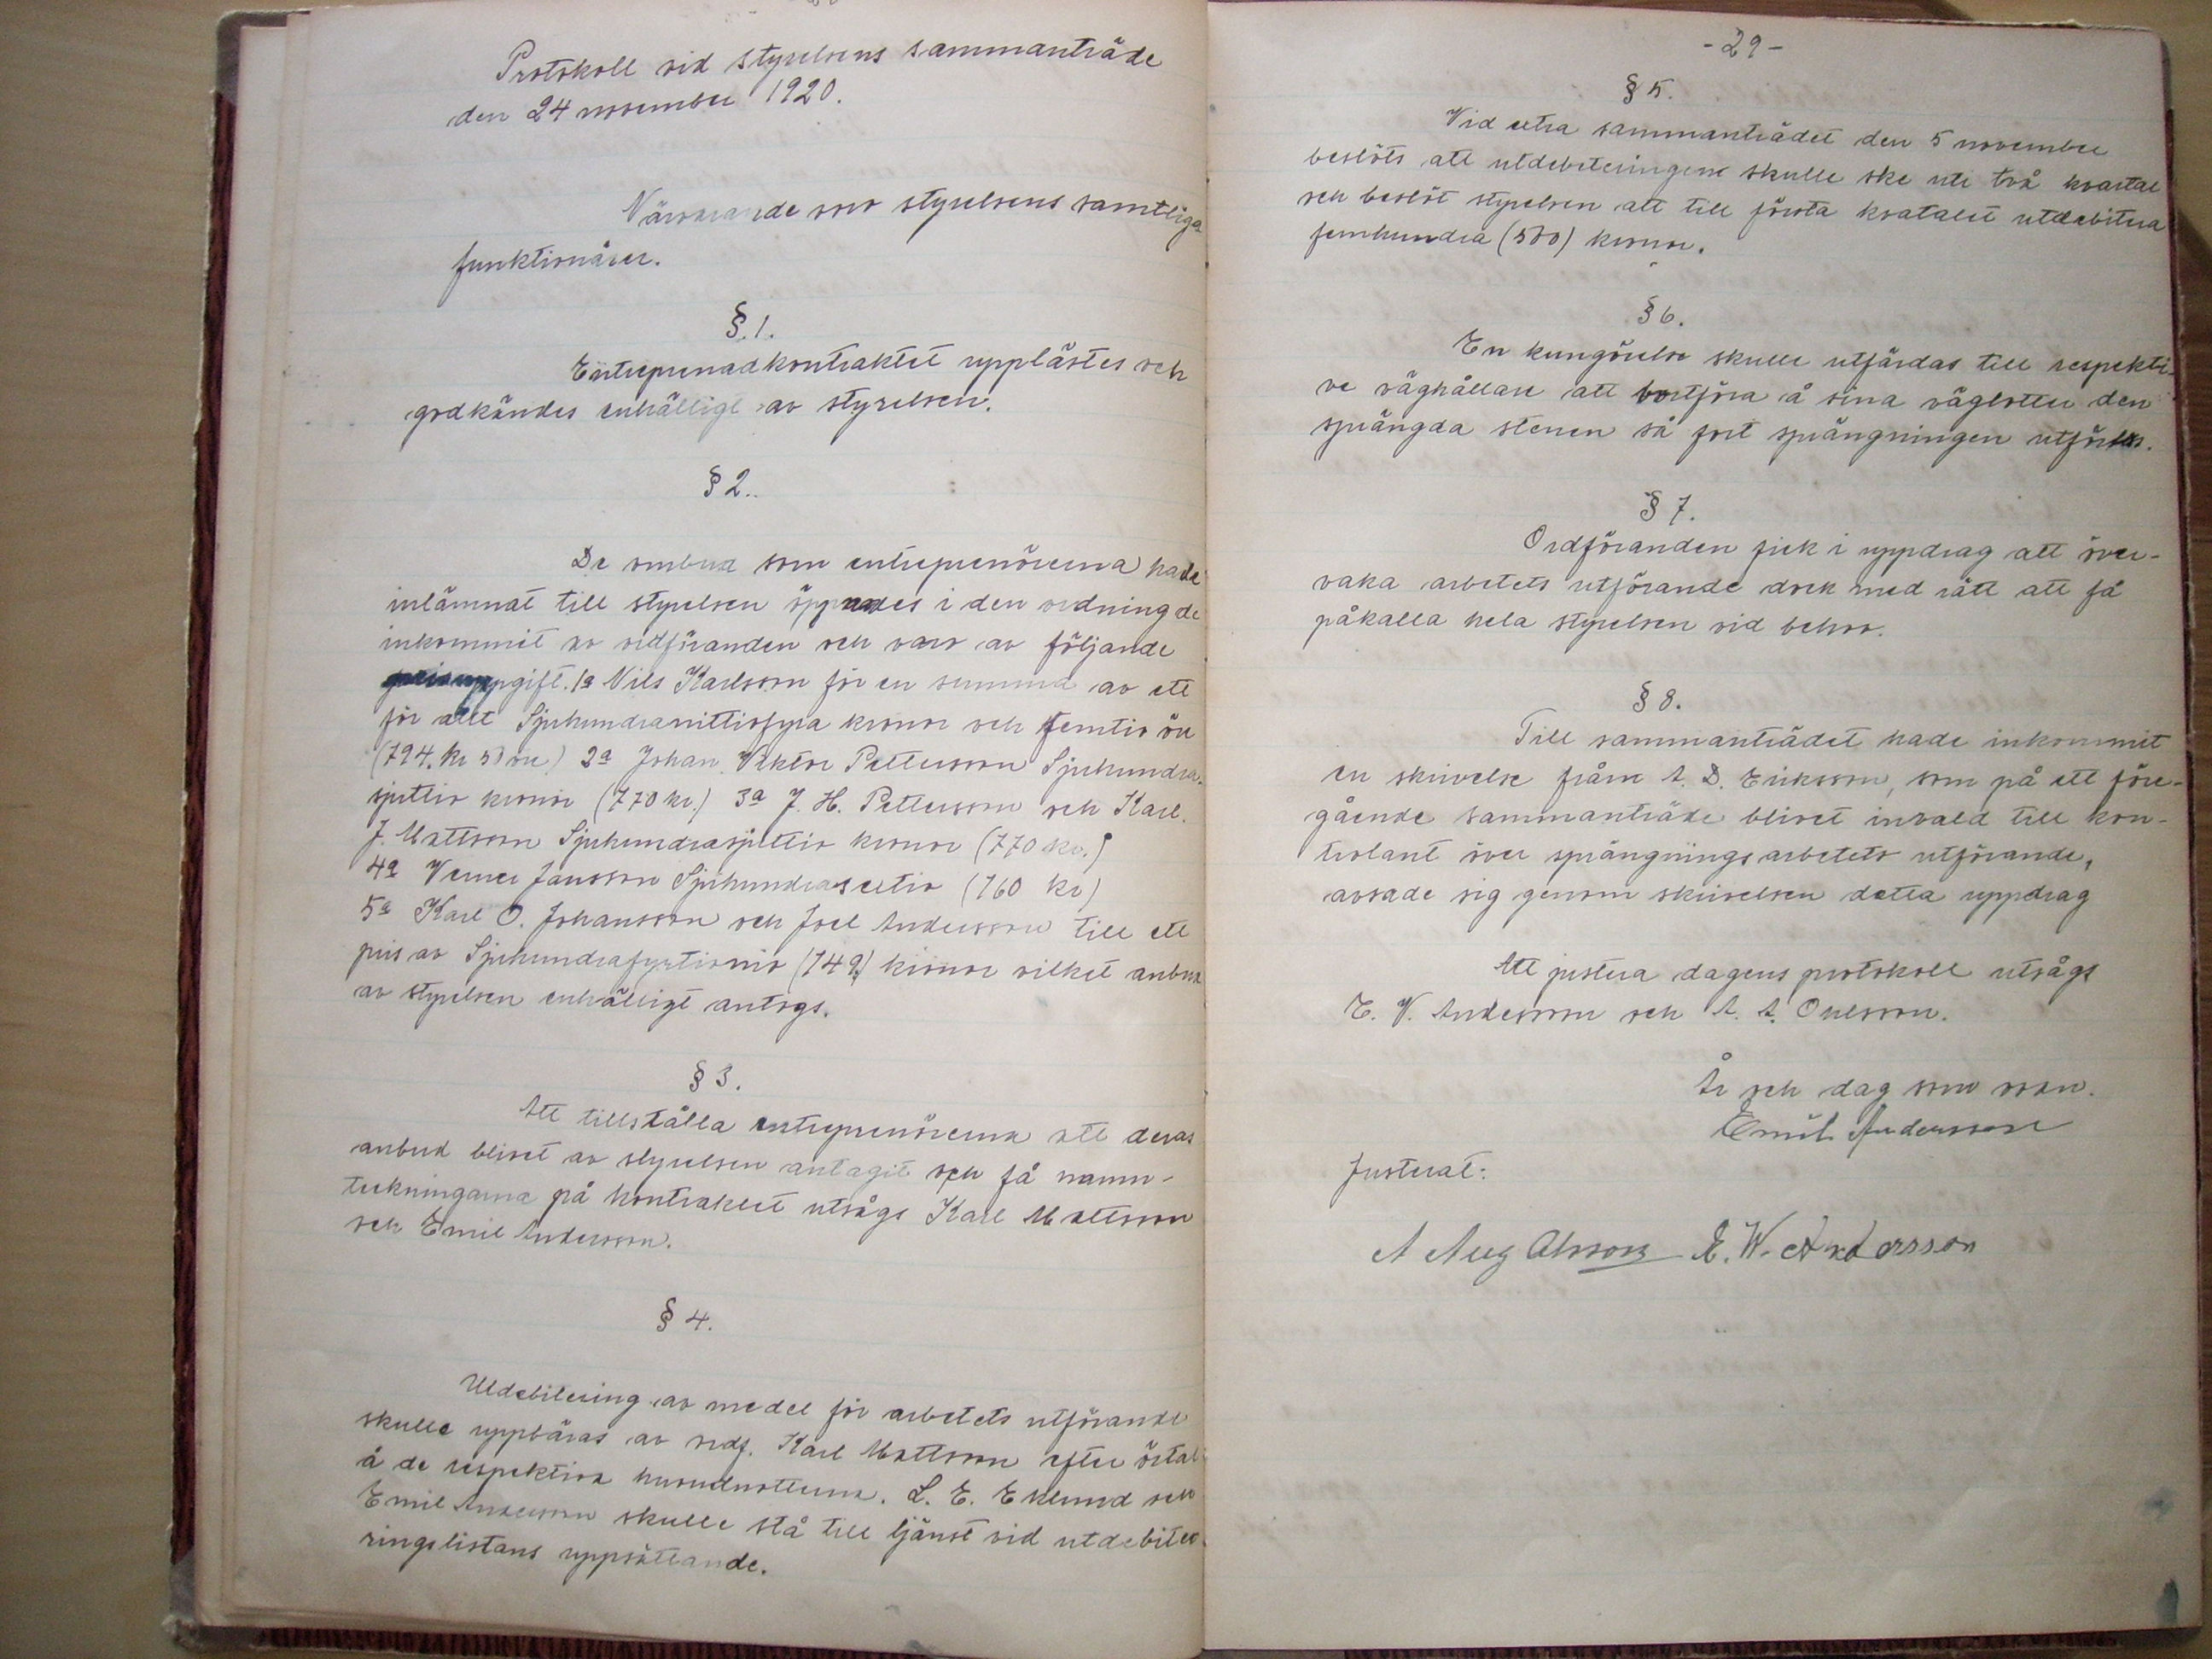 Protokoll vid styrelsens sammanträde
den 24 november 1920.
Närvarande voro styrelsens samtliga
funktionärer.
§.1.
Entreprenadkontraktet upplästes och
godkändes enhälligt av styrelsen.
§ 2.
De ombud som entreprenörerna hade
inlämnat till styrelsen öppnades i den ordning de
inkommit av ordföranden och voro av följande
prisuppgift. 1a Nils Karlsson för en summa av ett
för allt Sjuhundranittiofyra kronor och femtio öre
(794. kr 50 öre) 2a Johan Viktor Pettersson Sjuhundra-
sjuttio kronor (770 kr.) 3a J. H. Pettersson och Karl.
J. Mattsson Sjuhundrasjuttio kronor (770 kr.)
4a Verner Jansson Sjuhundrasextio (760 kr)
5a Karl O. Johansson och Joel Andersson till ett
pris av Sjuhundrafyrtionio (749) kronor vilket anbud
av styrelsen enhälligt antogs.
§ 3.
Att tillställa entreprenörerna att deras
anbud blivet av styrelsen antagit och få namn-
teckningarna på kontraktet utsågs Karl Mattsson
och Emil Andersson.
§ 4.
Utdebitering av medel för arbetets utförande
skulle uppbäras av ordf. Karl Mattsson efter örtal
å de respektiva huvudrotterna. L. E. Eklund och
Emil Andersson skulle stå till tjänst vid utdebite-
ringslistans uppsättande.
-29-
§ 5.
Vid extra sammanträdet den 5 november
beslöts att utdebeteringene skulle ske uti två kvartal
och beslöt styrelsen att till första kvatalet utdebitera
femhundra (500) kronor.
§ 6.
En kungörelse skulle utfärdas till respekti-
ve väghållare att bortföra å sina väglotter den
sprängda stenen så fort sprängningen utförtes.
§ 7.
Ordföranden fick i uppdrag att över-
vaka arbetets utförande dock med rätt att få
påkalla hela styrelsen vid behov.
§ 8.
Till sammanträdet hade inkommit
en skrivelse från A. D. Eriksson, som på ett före-
gående sammanträde blivet invald till kon-
trolant över sprängningsarbetets utförande,
avsade sig genom skrivelsen detta uppdrag
Att justera dagens protokoll utsågs
E. V. Andersson och A. A. Ohlsson.
År och dag som ovan.
Emil Andersson
Justerat:
A Aug Olsson E. W. Andersson